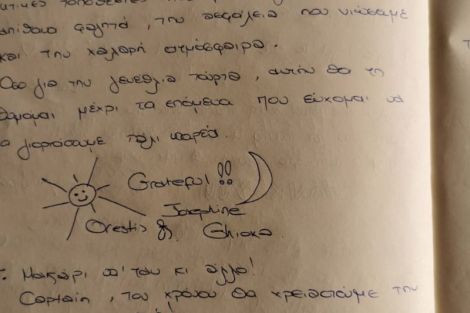 φαγητό, την ασφάλεια που νιώσαμε
και την χαλαρή ατμόσφαιρα.
Όσο για την γενέθλια τούρτα, αυτήν θα τη
μέχρι τα επόμενα που εύχομαι να
γιορτάσουμε πάλι παρέα.
Grateful!!
Josephine
Orestis &
Μακάρι κι άλλο!
Captain, του χρόνου θα χρειαστούμε την